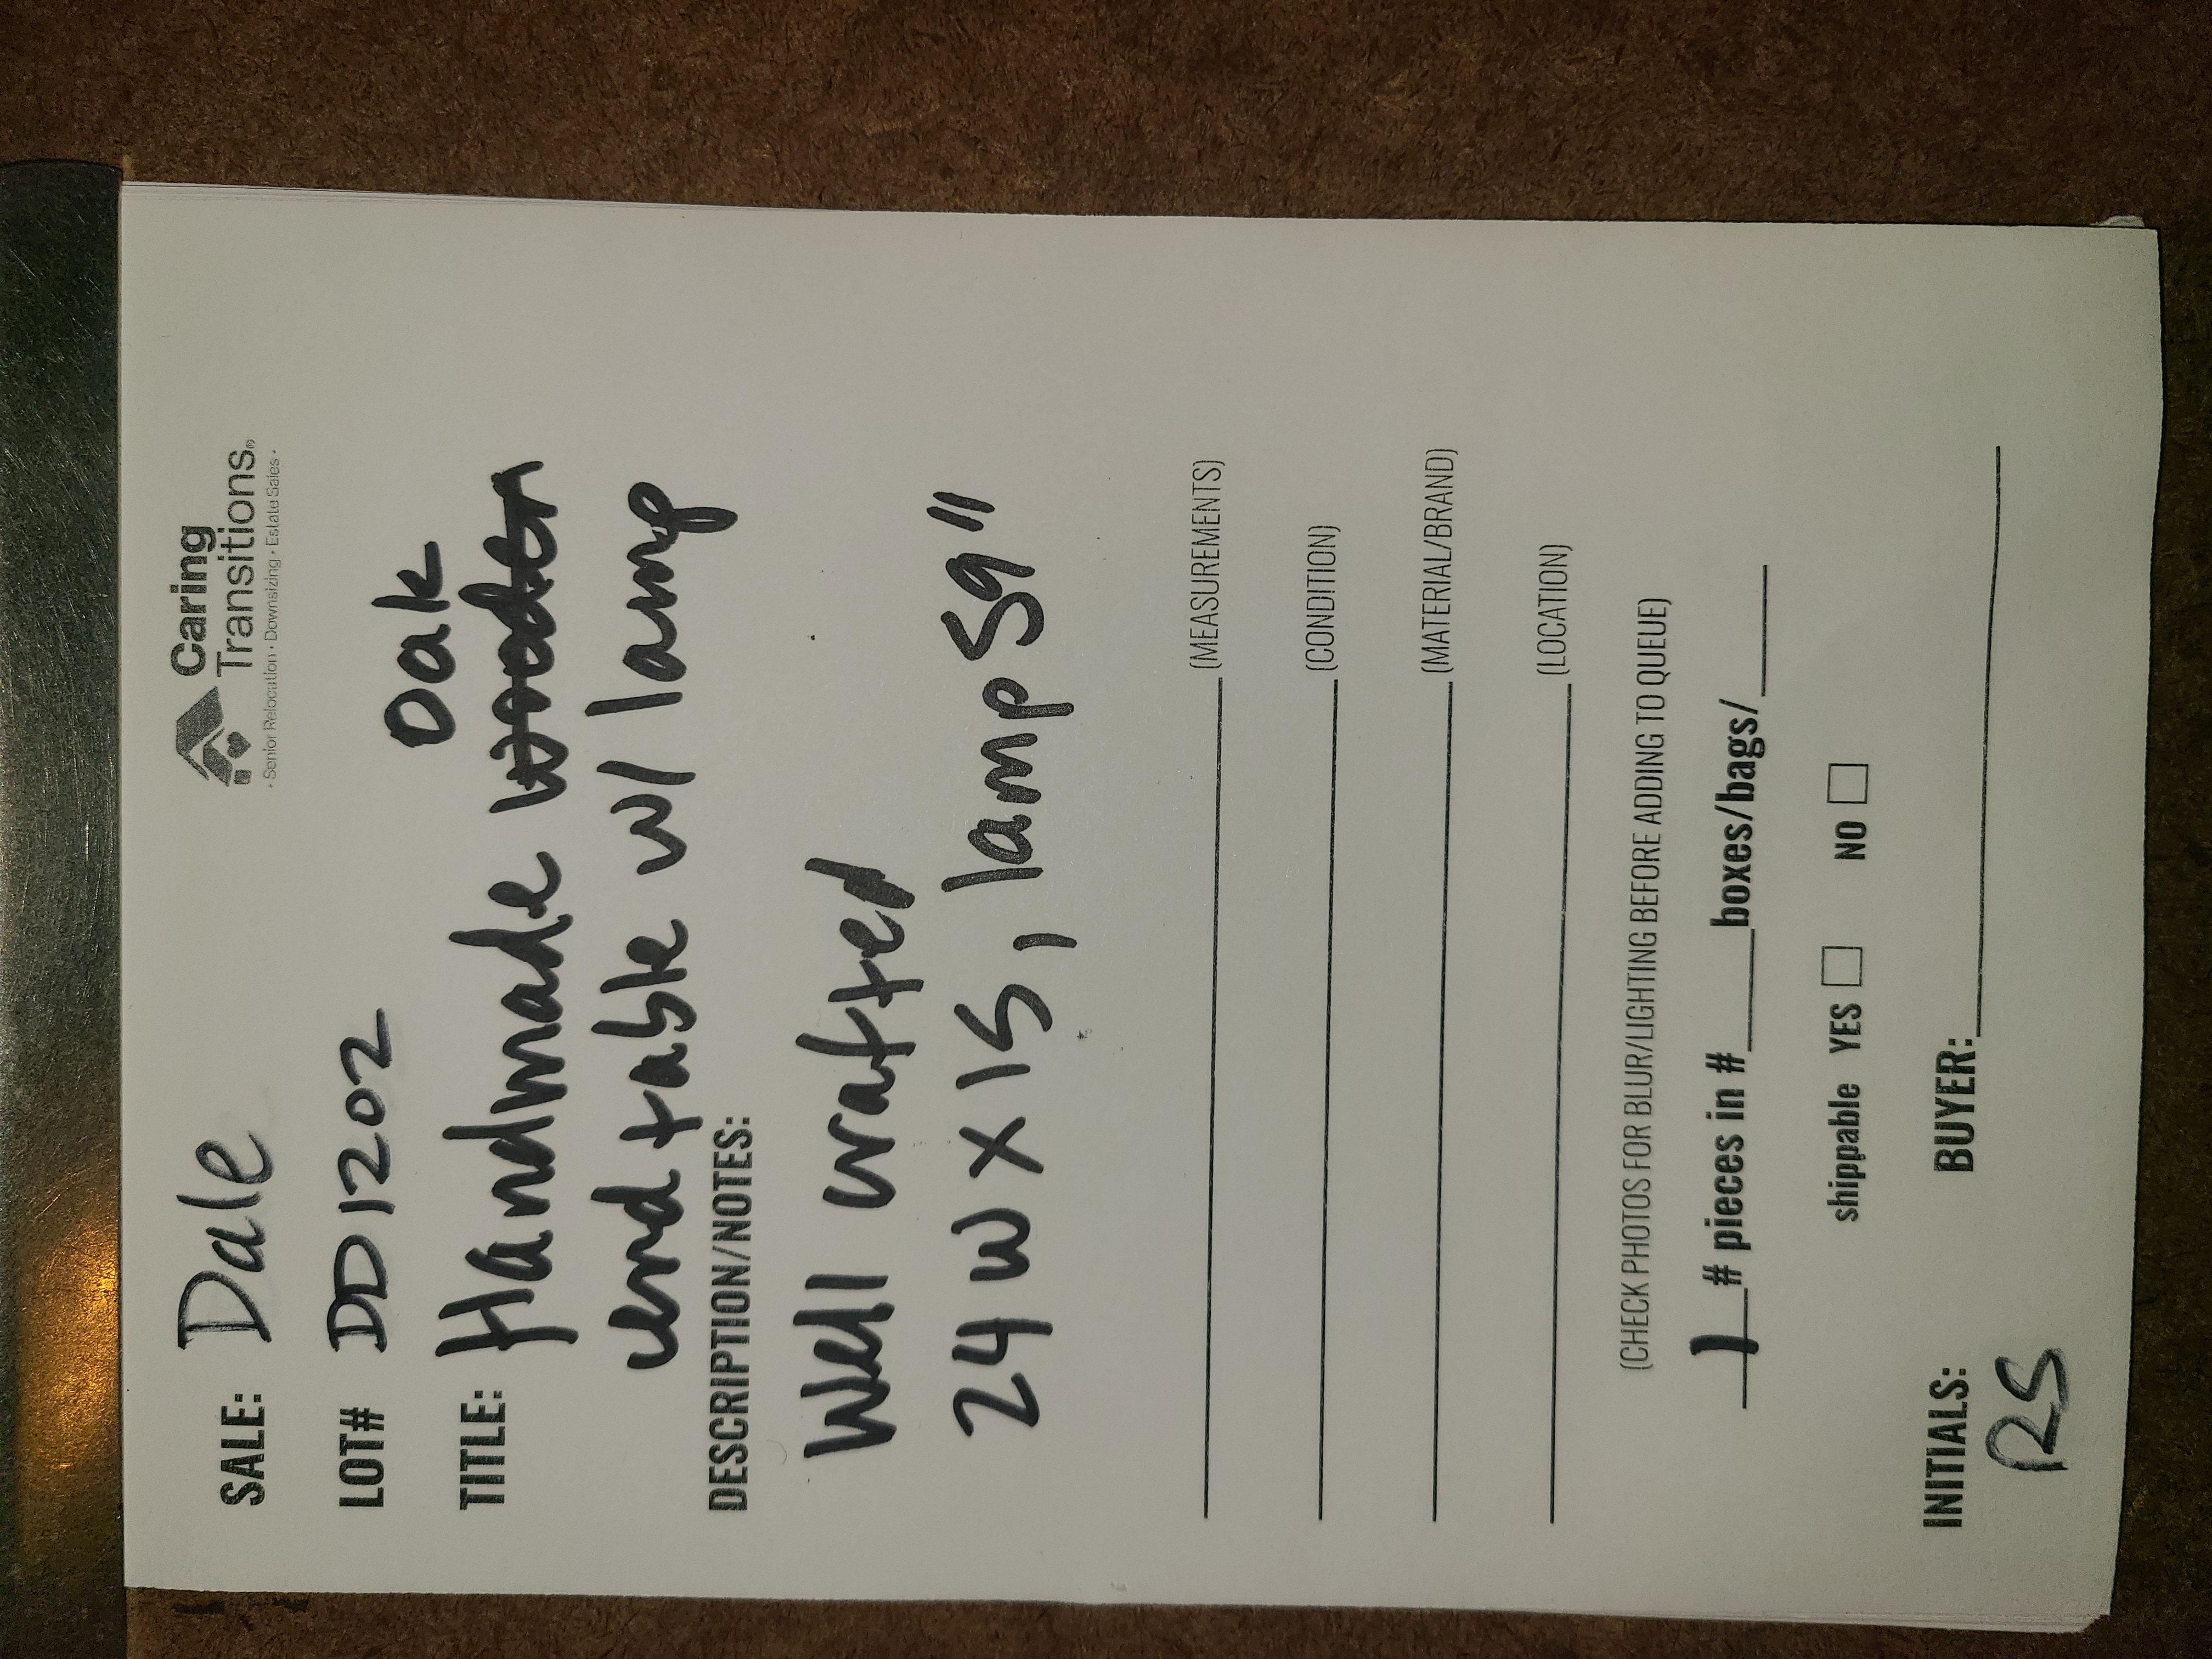 Caring
Transitions®
· Senior Relocation · Downsizing · Estate Sales ·
SALE: Dale
LOT# DD1202
Oak
TITLE: Handmade wooden
end table w/ lamp
DESCRIPTION/NOTES:
Well crafted
24 W x 15, lamp 59"
(MEASUREMENTS)
(CONDITION)
(MATERIAL/BRAND)
(LOCATION)
(CHECK PHOTOS FOR BLUR/LIGHTING BEFORE ADDING TO QUEUE)
1 # pieces in # boxes/bags/
shippable YES NO
INITIALS: BUYER:
RS